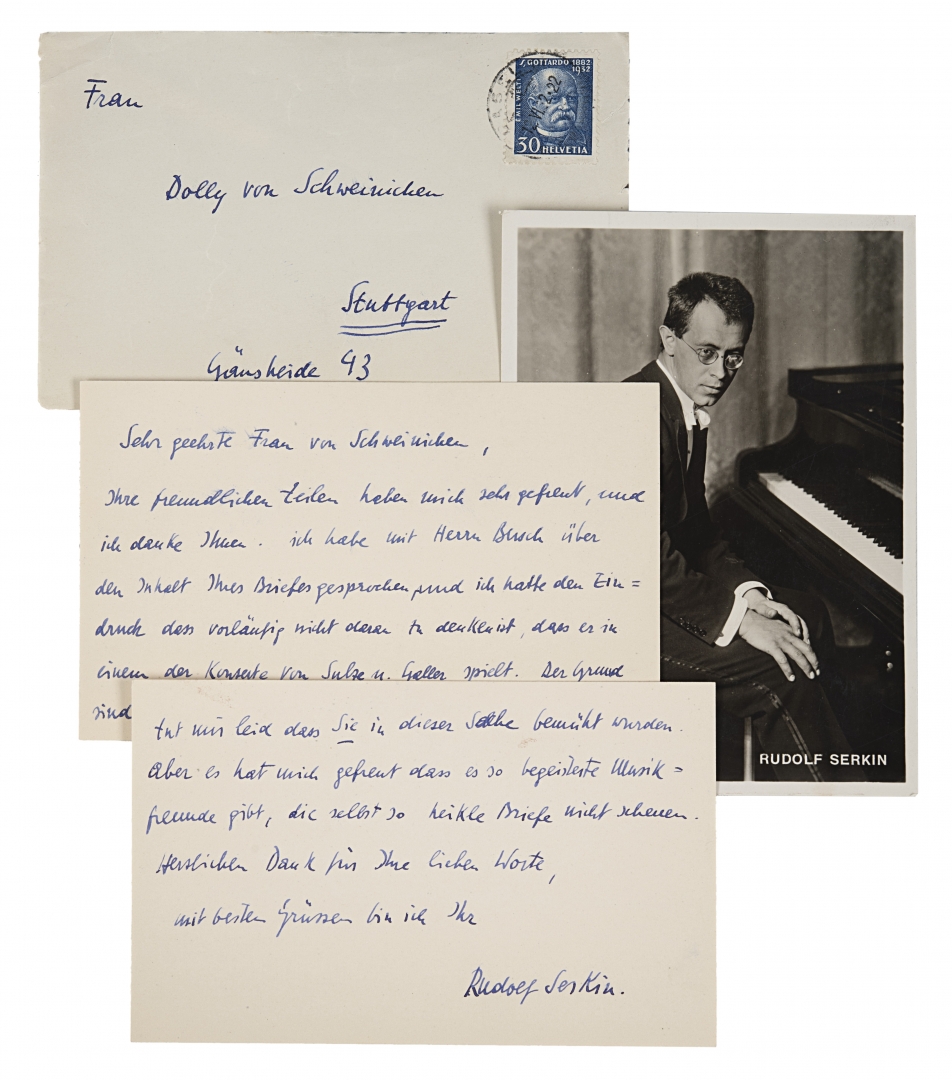 Frau
Dolly von Schweinichen
Stuttgart
Gänsheide 43
S. GOTTARDO 1882
1932
EMIL WELTI
30 HELVETIA
Sehr geehrte Frau von Schweinichen,
Ihre freundlichen Zeilen haben mich sehr gefreut, und
ich danke Ihnen. ich habe mit Herrn Busch über
den Inhalt Ihres Briefes gesprochen, und ich hatte den Ein=
druck dass vorläufig nicht daran zu denken ist, dass er in
einem der Konzerte von Sulze u. Galler spielt. Der Grund
sind
tut mir leid dass Sie in dieser Sache bemüht wurden.
Aber es hat mich gefreut dass es so begeisterte Musik=
freunde gibt, die selbst so heikle Briefe nicht scheuen.
Herzlichen Dank für Ihre lieben Worte,
mit besten Grüssen bin ich Ihr
Rudolf Serkin.
RUDOLF SERKIN